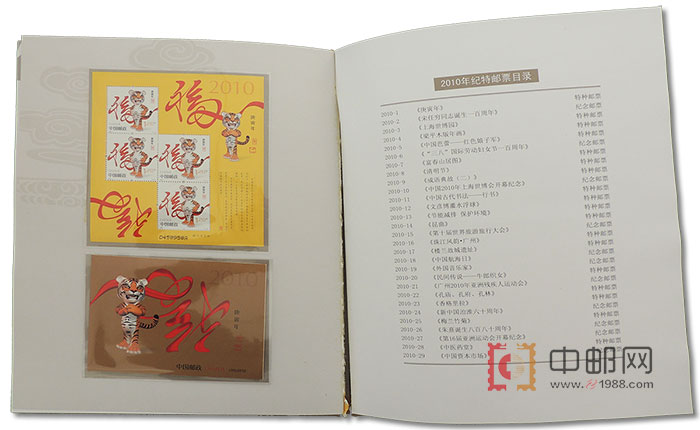 2010
福
庚寅年
中国邮政
中国邮政
中国邮政
中国邮政
2010
庚寅年
中国邮政
2010年纪特邮票目录
2010-1 《庚寅年》 特种邮票
2010-2 《宋任穷同志诞生一百周年》 纪念邮票
2010-3 《上海世博园》 特种邮票
2010-4 《梁平木版年画》 特种邮票
2010-5 《中国芭蕾——红色娘子军》 特种邮票
2010-6 《“三八”国际劳动妇女节一百周年》 纪念邮票
2010-7 《富春山居图》 特种邮票
2010-8 《清明节》 特种邮票
2010-9 《成语典故（二）》 特种邮票
2010-10 《中国2010年上海世博会开幕纪念》 纪念邮票
2010-11 《中国古代书法——行书》 特种邮票
2010-12 《文彦博灌水浮球》 特种邮票
2010-13 《节能减排 保护环境》 特种邮票
2010-14 《昆曲》 特种邮票
2010-15 《第十届世界旅游旅行大会》 纪念邮票
2010-16 《珠江风韵·广州》 特种邮票
2010-17 《楼兰故城遗址》 特种邮票
2010-18 《中国航海日》 纪念邮票
2010-19 《外国音乐家》 纪念邮票
2010-20 《民间传说——牛郎织女》 特种邮票
2010-21 《广州2010年亚洲残疾人运动会》 纪念邮票
2010-22 《孔庙、孔府、孔林》 特种邮票
2010-23 《香格里拉》 特种邮票
2010-24 《新中国治淮六十周年》 纪念邮票
2010-25 《梅兰竹菊》 特种邮票
2010-26 《朱熹诞生八百八十周年》 纪念邮票
2010-27 《第16届亚洲运动会开幕纪念》 纪念邮票
2010-28 《中医药堂》 特种邮票
2010-29 《中国资本市场》
中邮网
www.1988.com